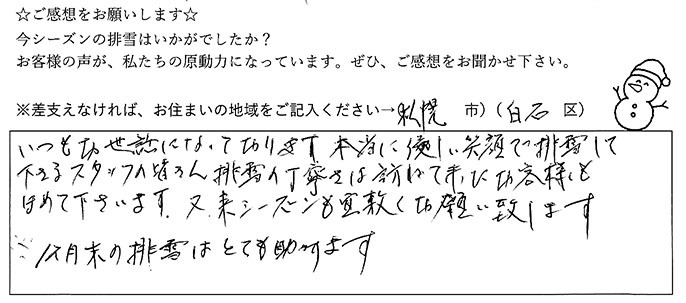 ☆ご感想をお願いします☆
今シーズンの排雪はいかがでしたか？
お客様の声が、私たちの原動力になっています。ぜひ、ご感想をお聞かせ下さい。
※差支えなければ、お住まいの地域をご記入ください→札幌 市）（白石 区）
いつもお世話になって切ります。本当に優しい笑顔で排雪して
下さるスタッフの皆さん 排雪の丁寧さは訪ねて来たお客様も
ほめて下さいます。又、来シーズンも宜敷くお願い致します
月末の排雪はとても助かります